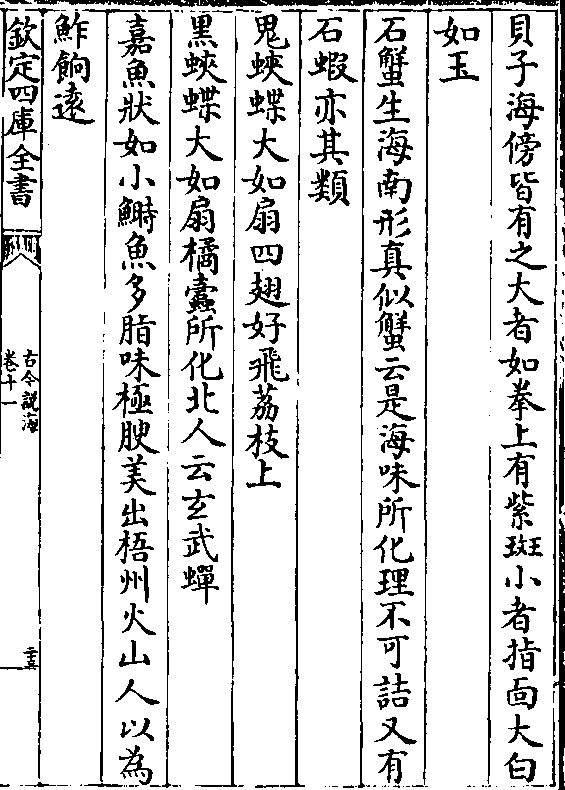 貝子海傍皆有之大者如拳上有紫斑小者指面大白
如玉
石蟹生海南形真似蟹云是海味所化理不可詰又有
石蝦亦其類
鬼蛺蝶大如扇四翅好飛荔枝上
黑蛺蝶大如扇橘蠹所化北人云玄武蟬
嘉魚狀如小鰣魚多脂味極腴美出梧州火山人以為
鮓餉遠
欽定四庫全書
古今說海
卷十一